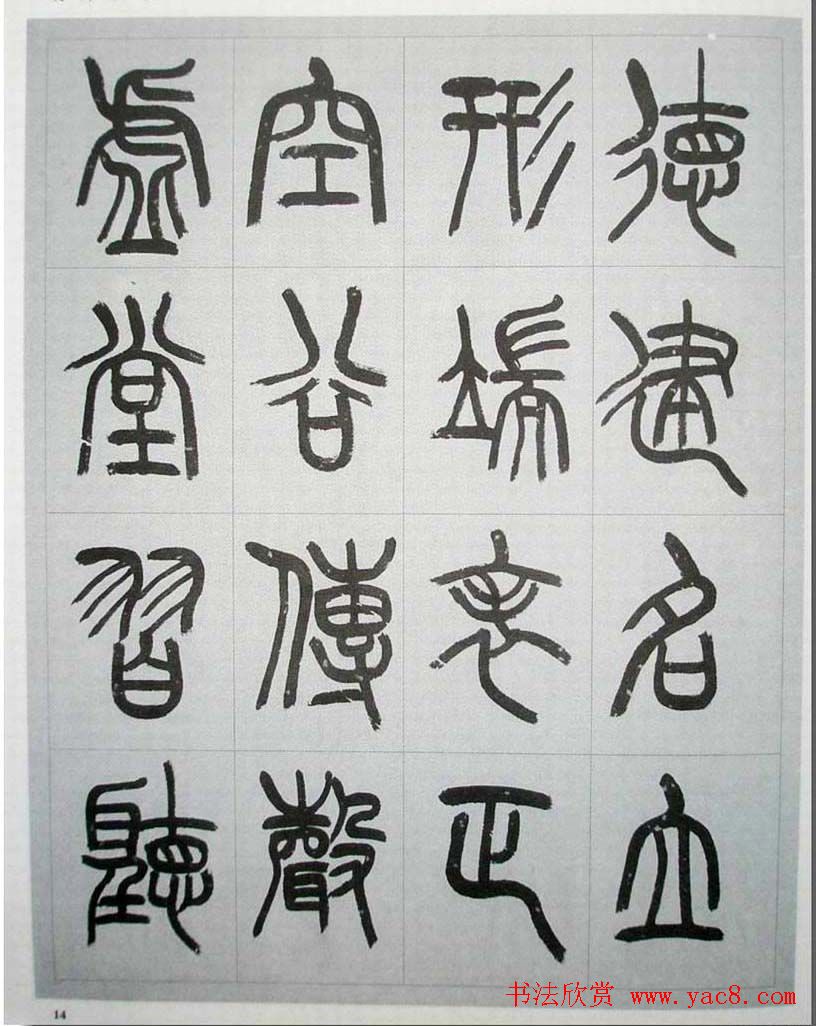 德建名立
形端表正
空谷傳聲
虛堂習聽
14
书法欣赏 www.yac8.com